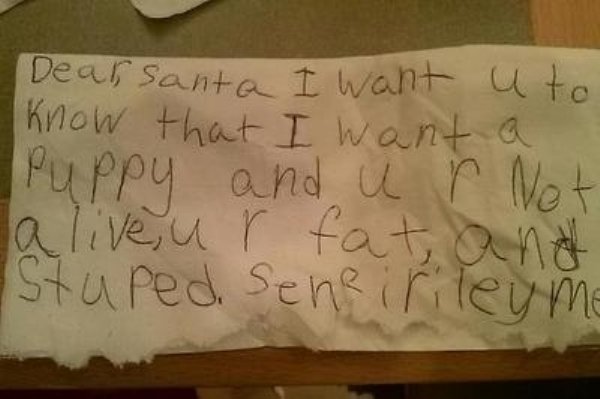 Dear santa I want u to
Know that I want a
Puppy and u r Not
alive, u r fat, and
Stuped. Senе irileyme